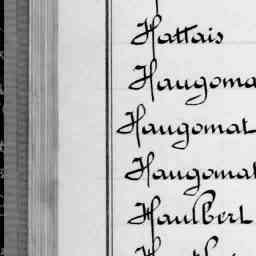 Hattais
Haugoma
Haugomat
Haugomat
Haulbert